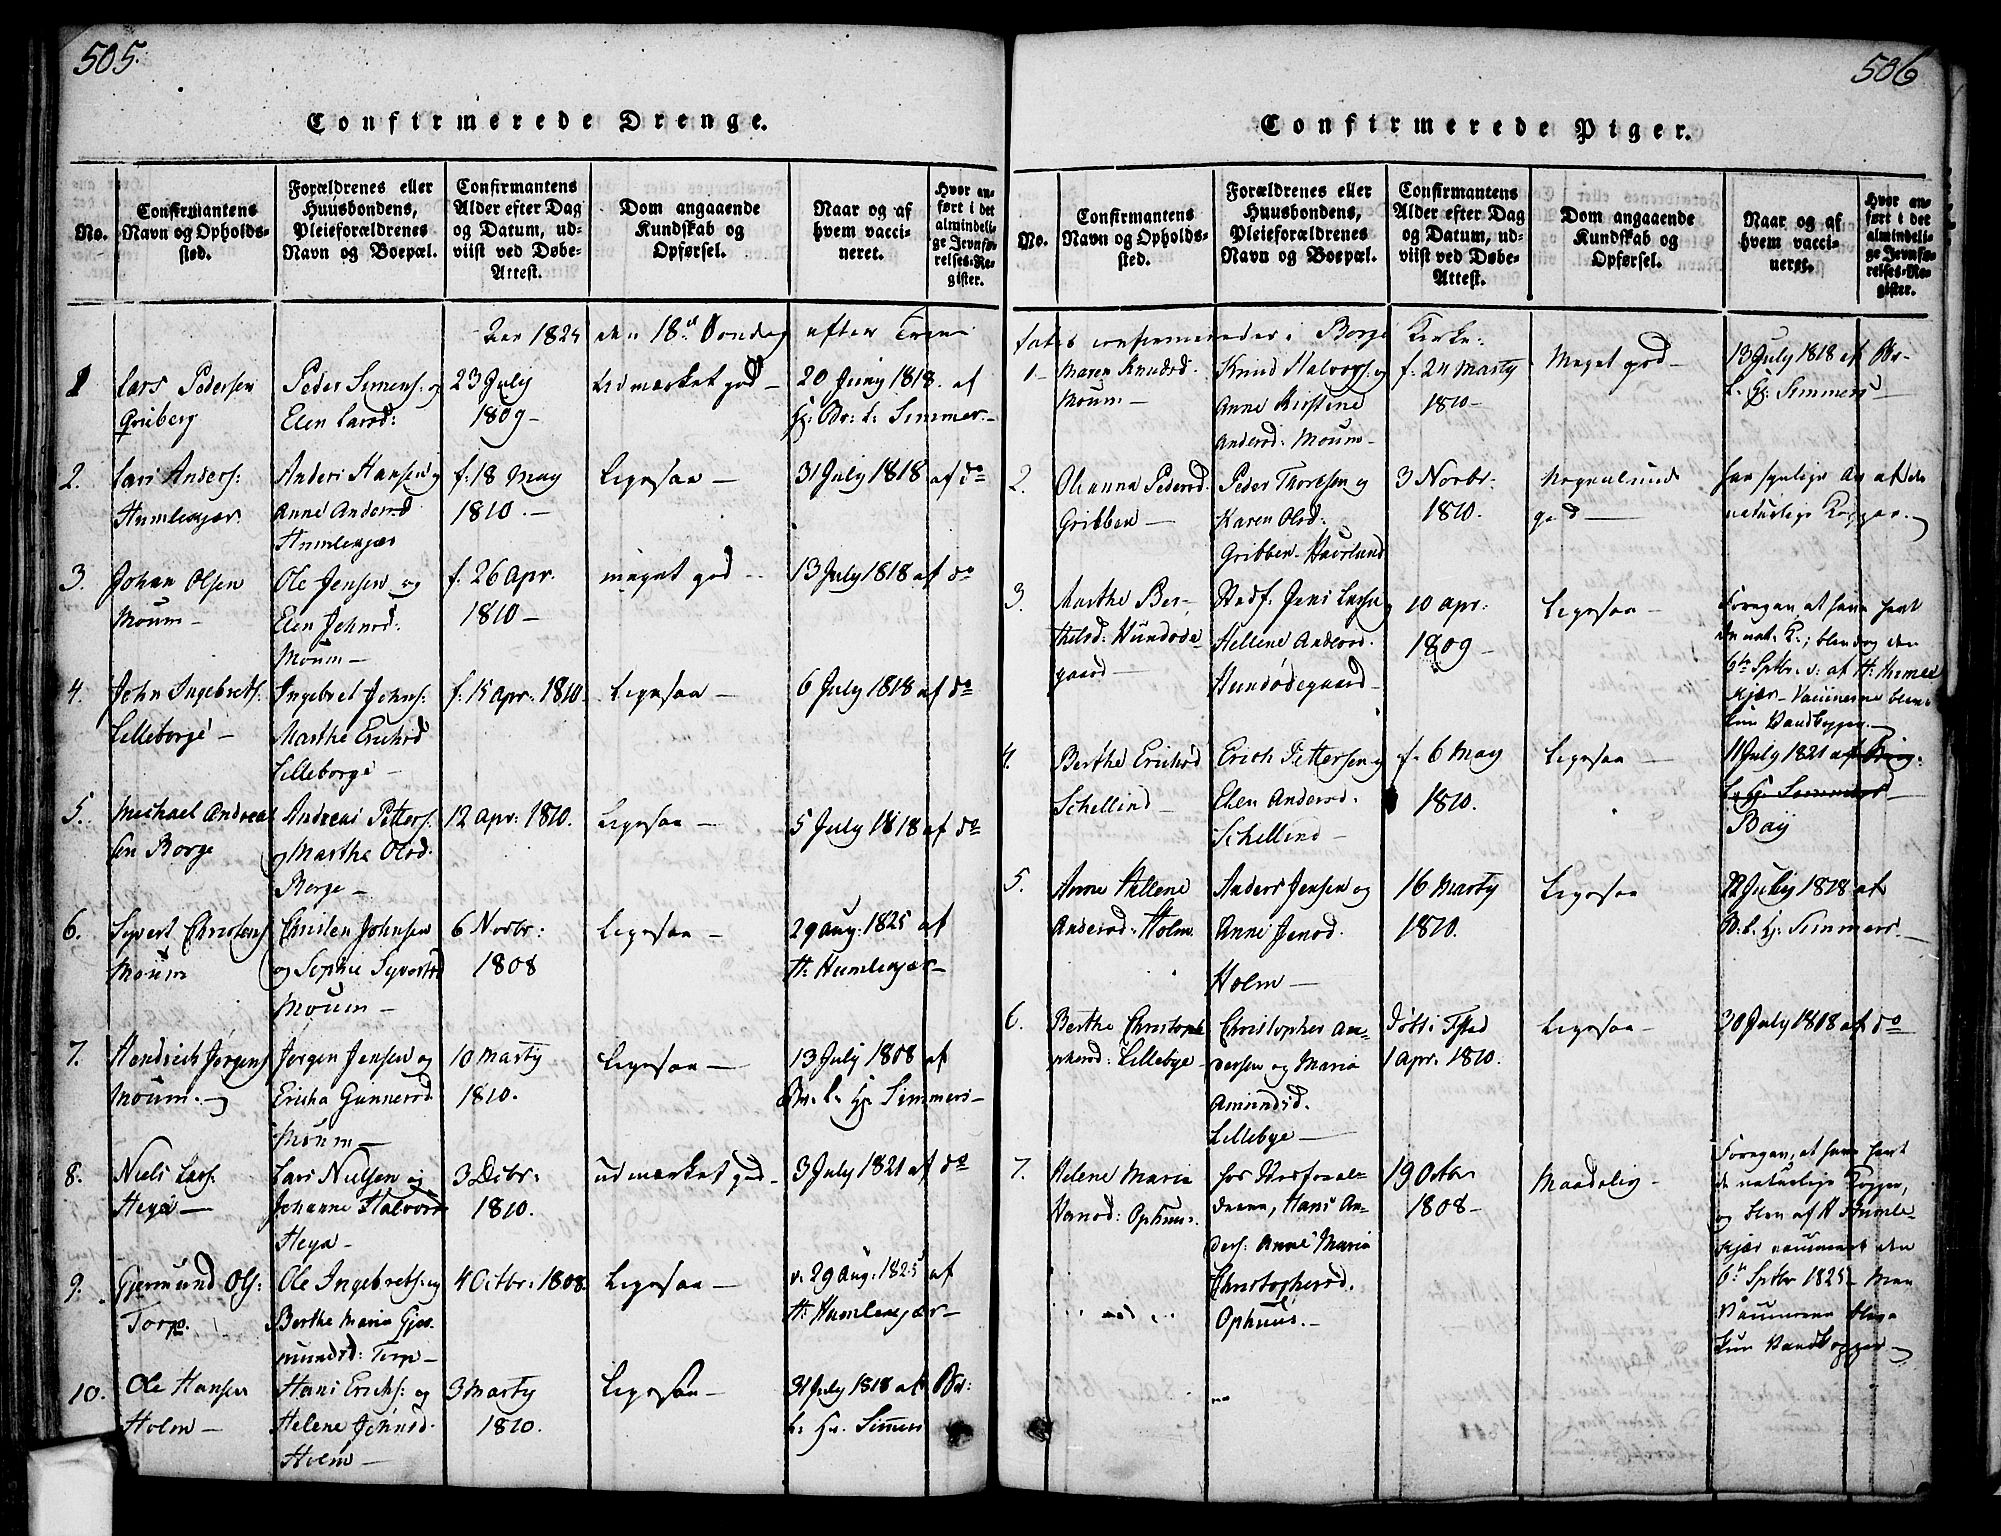 505.
Confirmerede Drenge.
No.
Confirmantens
Navn og Opholds-
sted.
Forældrenes eller
Huusbondens,
Pleieforældrenes
Navn og Boepæl.
Confirmantens
Alder efter Dag
og Datum, ud-
viist ved Døbe-
Attest.
Dom angaaende
Kundskab og
Opførsel.
Naar og af
hvem vacci-
neret.
Hvor an-
ført i det
almindeli-
ge Jevnfø-
relses-Re-
gister.
Aar 1825 den 18de Søndag efter Trin:
1
Lars Pedersen
Griberg
Peder Simens: og
Elen Larsd:
23 July
1809 –
Udmærket god –
20 Juny 1818. af
Hr. Br: L: Simmers –
2.
Lars Anders:
Humlekjær.
Anders Hansen og
Anne Andersd
Humlekjær
f: 18 May
1810. –
Ligesaa –
31 July 1818 af do
3.
Johan Olsen
Moum –
Ole Jensen og
Elen Johnsd:
Moum –
f. 26 Apr.
1810 –
meget god –
13 July 1818 af do
4.
John Ingebrets:
Lilleborge –
Ingebret Johns:
Marthe Erichsd
Lilleborge –
f. 15 apr: 1810
Ligesaa –
6 July 1818 af do
5.
Michael Andrea
sen Borge
Andreas Petters:
og Marthe Olsd.
Borge –
12 apr: 1810.
Ligesaa –
5 July 1818 af do
6.
Syvert Christens
Moum
Christen Johnsen
og Sophie Syvertsd
Moum –
6 Novbr:
1808
Ligesaa –
29 Aug: 1825 af
H: Humlekjær –
7.
Hendrich Jørgens
Moum. –
Jørgen Jensen og
Ericha Gunnersd
Moum –
10 Marty
1810.
Ligesaa –
13 July 1808 af
Br. L. Hr. Simmers –
8.
Niels Lars:
Heya –
Lars Nielsen og
Johanne Halvors
Heya –
3 Decbr:
1810.
udmærket god –
3 July 1821 af do
9.
Gjermund Ols:
Torp.
Ole Ingebrets: og
Berthe Maria Gjer
mundsd: Torp –
4 Octbr: 1808
Ligesaa –
v. 29 Aug: 1825 af
H: Humlekjær –
10.
Ole Hansen
Holm –
Hans Erichs: og
Helene Johnsd.
Holm –
3 Marty
1810.
Ligesaa –
31 July 1818 af Br:
L. Hr. Simers
506
Confirmerede Piger.
No.
Confirmantens
Navn og Opholds-
sted.
Forældrenes eller
Huusbondens,
Pleieforældrenes
Navn og Boepæl.
Confirmantens
Alder efter Dag
og Datum, ud-
viist ved Døbe-
Attest.
Dom angaaende
Kundskab og
Opførsel.
Naar og af
hvem vacci-
neret.
Hvor an-
ført i det
almindeli-
ge Jevnfø-
relses-Re-
gister.
confirmereder i Borge Kirke:
1 –
Maren Knudsd.
Moum –
Knud Halvors: og
Anne Kirstine
Andersd: Moum –
f. 24 Marty
1810 –
Meget god –
13 July 1818 af Br-
L. Hr: Simmers –
2.
Olianna Pedersd.
Gribben –
Peder Thoresen og
Karen Olsd:
Gribben – Haverlund
3 Novbr:
1810.
god –
har synlige Ar af de
naturlige Kopper. –
3.
Marthe Ber-
thelsd: Hundøde
gaard –
Stedf: Jens Larsen
Hellene Andersd.
Hundødegaard –
10 apr:
1809 –
Ligesaa –
Foregav, at have havt
de nat. K.; blev dog den
6te Sptbr. v: af H: Humle
kjær – Vaccinerne blev
kun Vandkopper. –
4.
Berthe Erichsd
Schellind –
Erich Pettersen og
Elen Andersd.
Schellind –
f. 6 May
1810.
Ligesaa –
11 July 1821 af
Bay
5.
Anne Hellene
Andersd: Holm
Anders Jensen og
Anne Jensd.
Holm –
16 Marty
1810.
Ligesaa
22 July 1818 af
B. L. Hr: Simmers. –
6.
Berthe Christoph
ersd: Lillebye –
Christopher An-
dersen og Maria
Amundsd.
Lillebye –
1 apr. 1810.
Ligesaa –
30 July 1818 af do
7.
Helene Maria
Hansd: Ophuus.
hos Stedforæl-
drene, Hans An-
ders: Anne Maria
Christophersd.
Ophuus. –
19 Octbr
1808 –
Maadelig –
Foregav, at have havt
de naturlige Kopper,
og blev af H Humle-
kjær vaccineret den
6te Sptbr 1825 – Men
Vaccinerne bleve
kun Vandkopper –